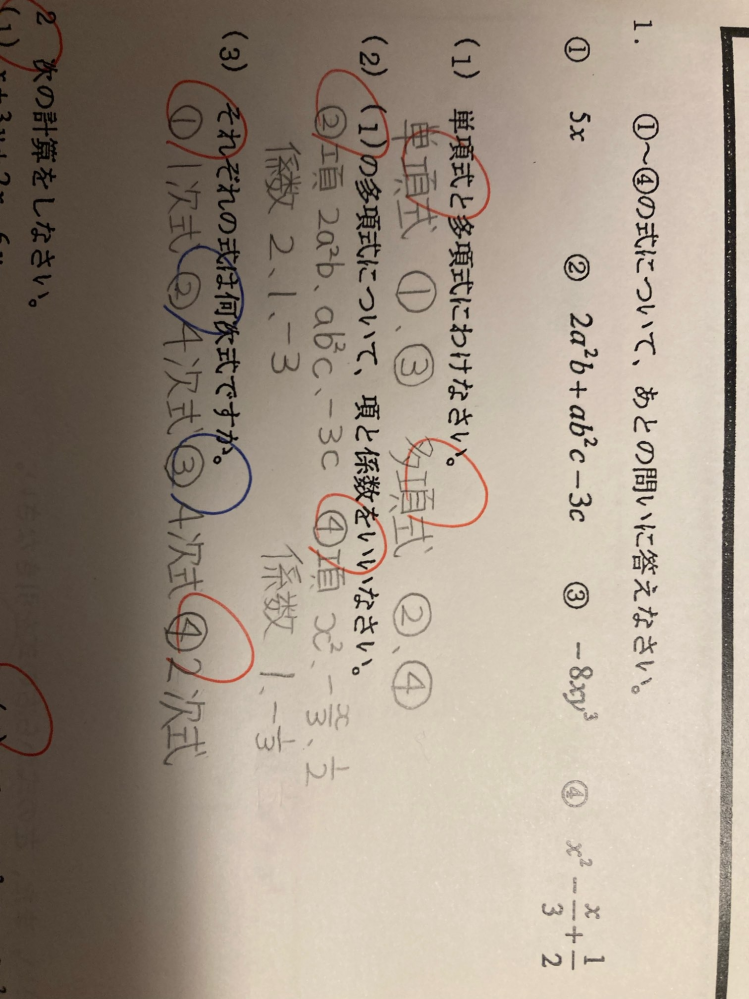 1. ①~④の式について、あとの問いに答えなさい。
① 5x ② 2a²b+ab²c-3c ③ -8xy³ ④ x²-x/3+1/2
(1) 単項式と多項式にわけなさい。
単項式 ①、③ 多項式 ②、④
(2) (1)の多項式について、項と係数をいいなさい。
②項 2a²b、ab²c、-3c ④項 x²、-x/3、1/2
係数 2、1、-3 係数 1、-1/3
(3) それぞれの式は何次式ですか。
①1次式 ②4次式 ③4次式 ④2次式
2 次の計算をしなさい。
(1)